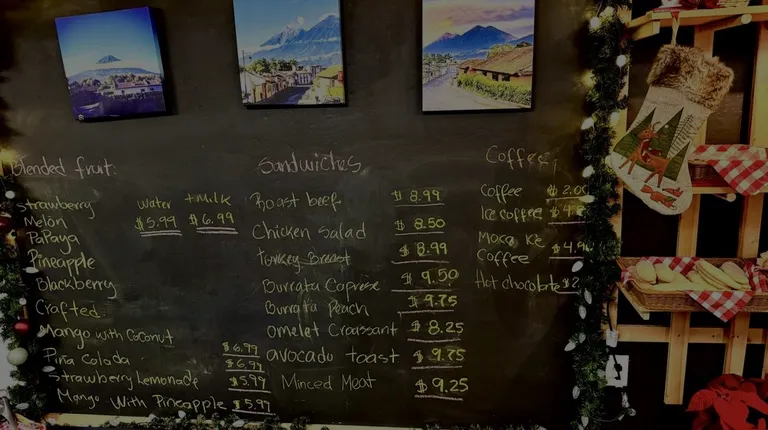 Blended fruit:
water + milk
Strawberry
$5.99 $6.99
Melon
Papaya
Pineapple
Blackberry
Crafted:
Mango with Coconut $6.99
Piña Colada $6.99
Strawberry Lemonade $5.99
Mango With Pineapple $5.99
Sandwiches
Roast beef $8.99
Chicken Salad $8.50
Turkey Breast $8.99
Burrata Caprese $9.50
Burrata Peach $9.75
omelet Craissant $8.25
avocado toast $9.75
Minced Meat $9.25
Coffee
Coffee $2.00
Ice coffee
Moca Ice
Coffee
Hot chocolate